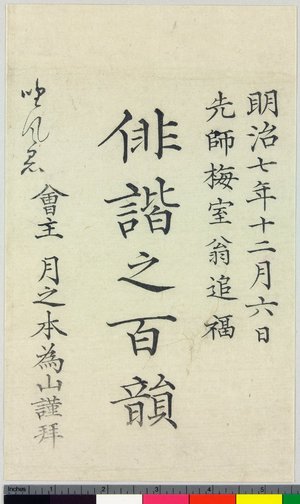 明治七年十二月六日
先師梅室翁追福
俳諧之百韻
會主 月之本為山謹拜
Inches 1 2 3 4 5